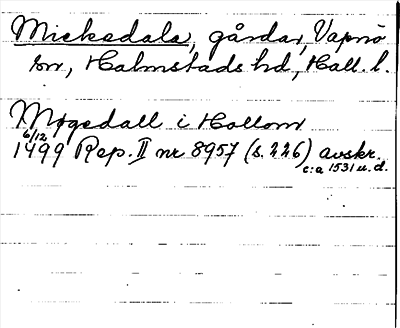 Mickedala, gårdar, Vapnö
sn, Halmstads hd, Hall. l.
Møgedall i Hallom
6/12
1499 Rep. II nr 8957 (s. 226) avskr.
c:a 1531 u.d.